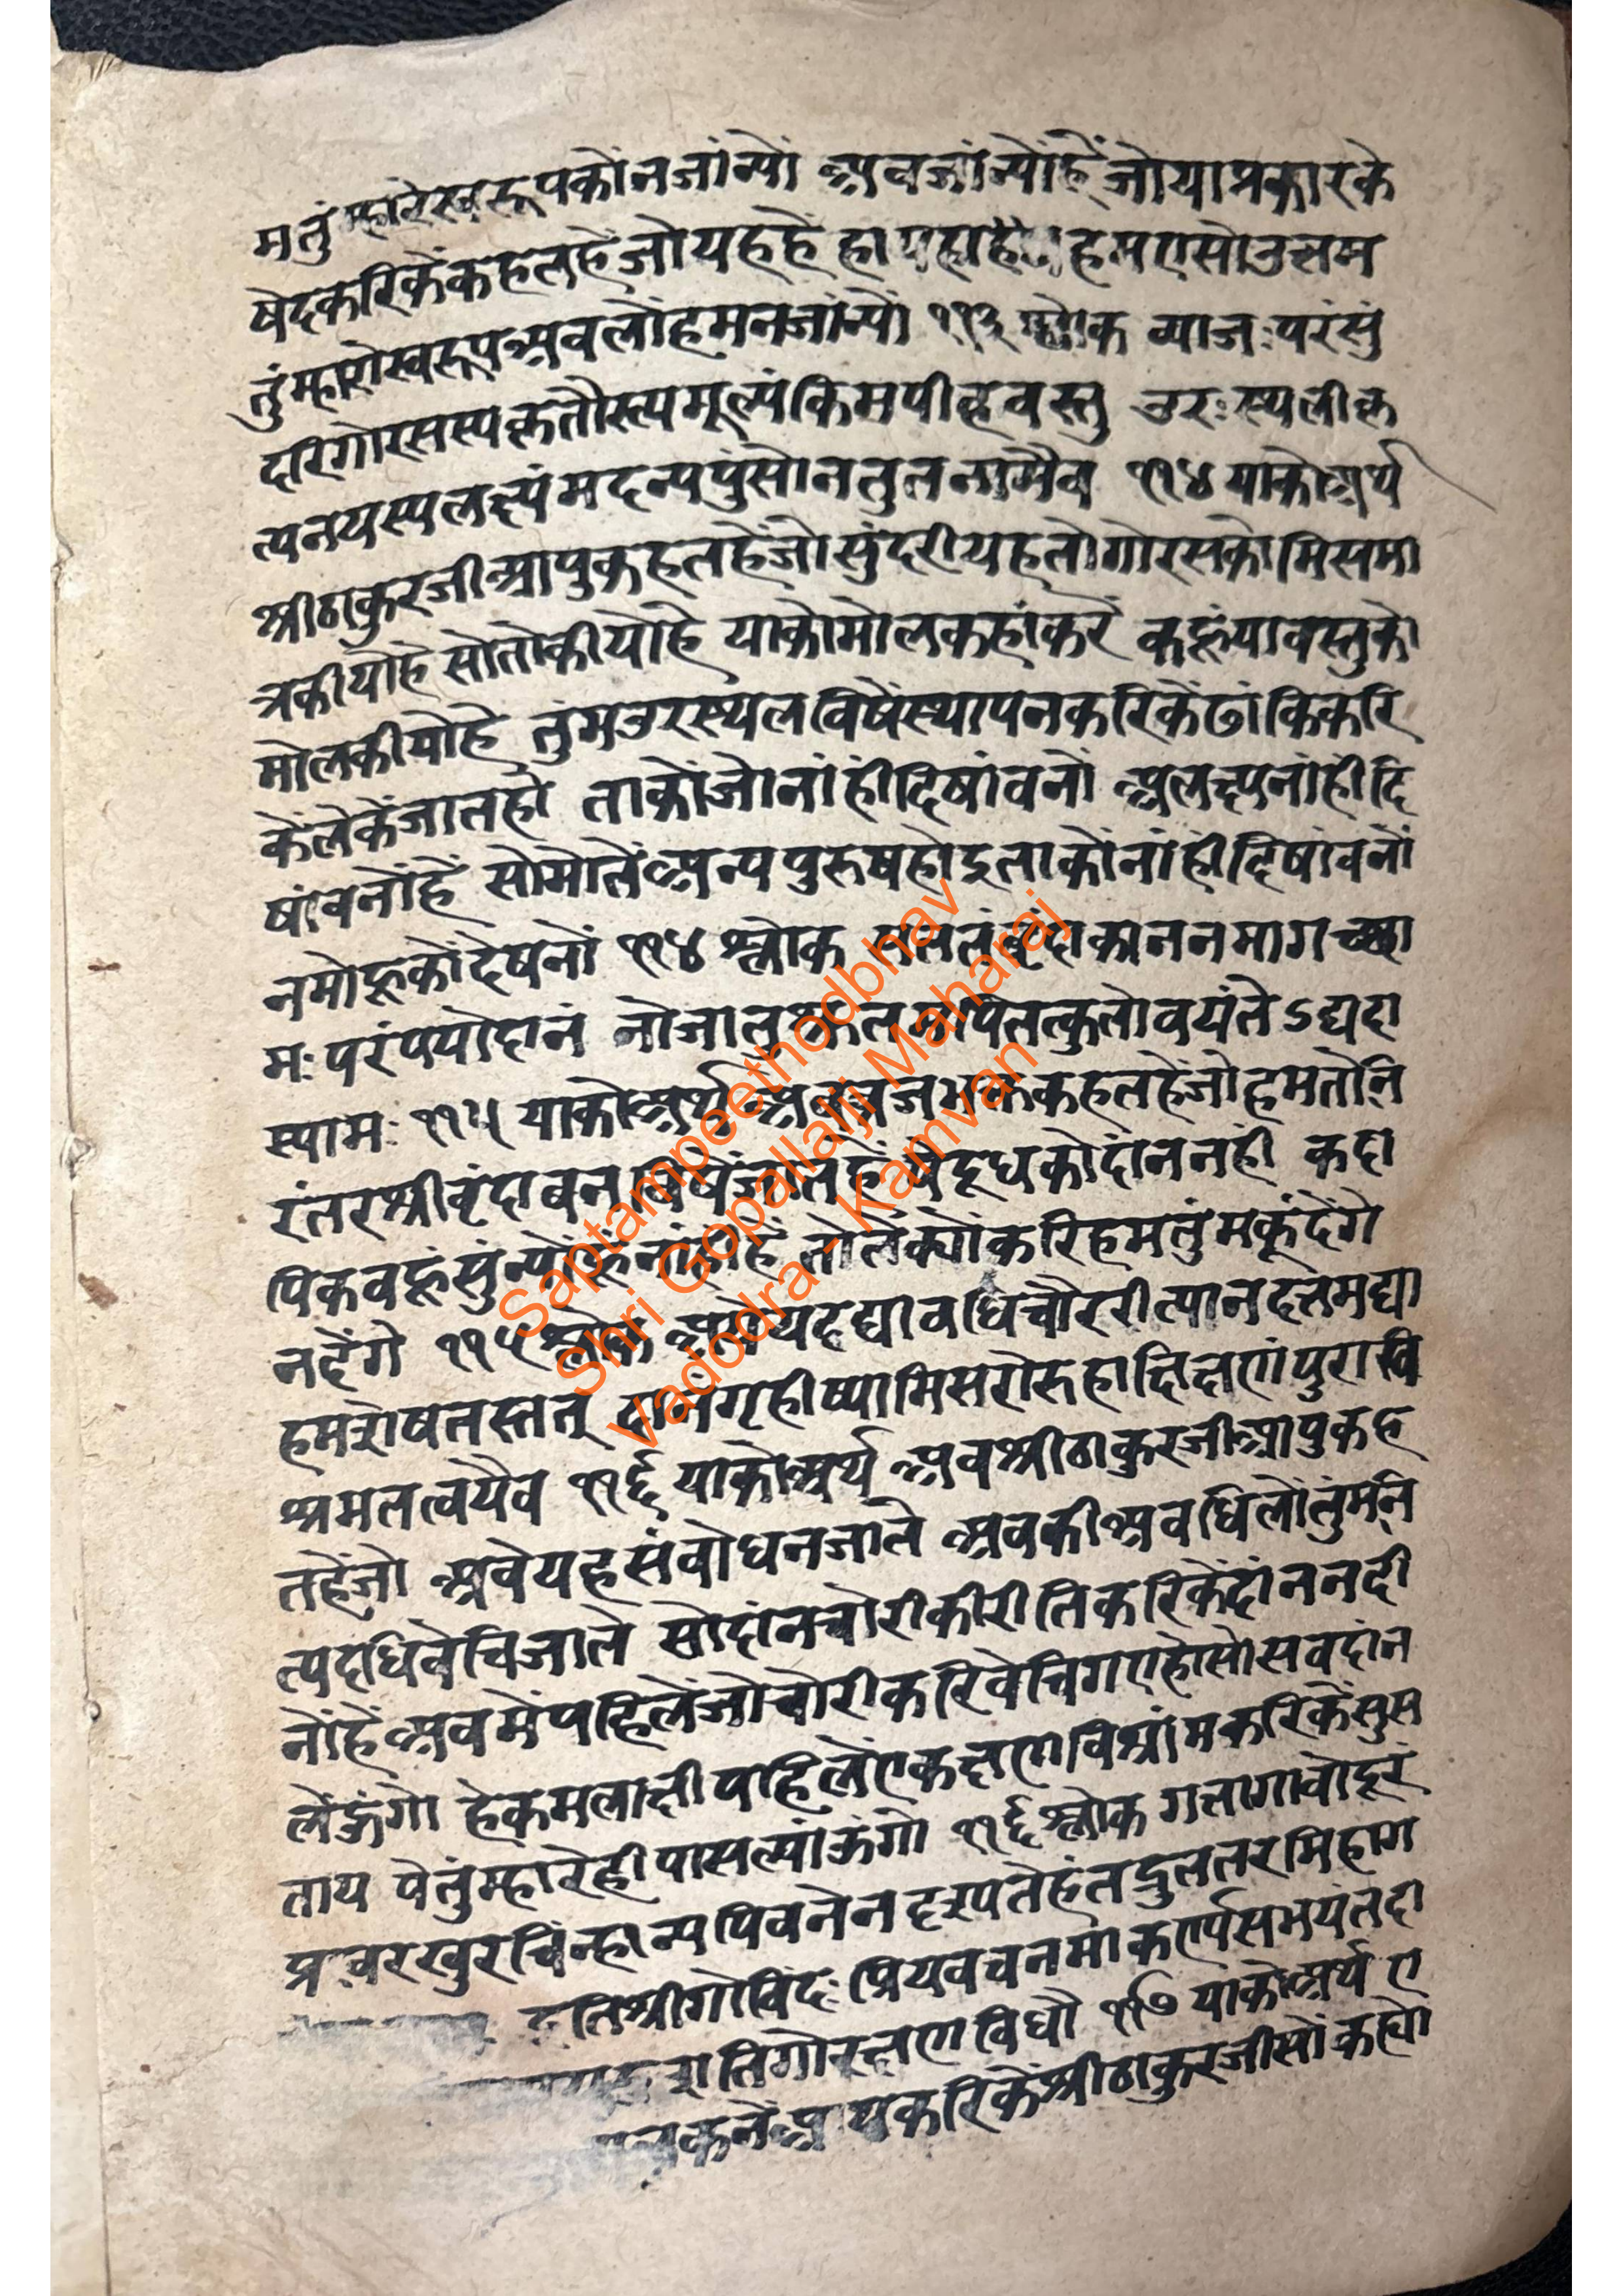 मतुंम्हारेस्वरूपकोंनजांन्यों अवजांन्योंहें जोयाप्रकारके
षेदकरिकेंकहतहेंजोयहहें हायहाहे हमएसोउत्तम
तुंम्हारोस्वरूपअवलोंहमनजांन्यों ११३ श्लोक व्याजःपरंसुं
दरिगोरसस्यकृतौस्त्यमूल्यंकिमपीहवस्तु उरःस्थलीकृ
त्यनयस्यलक्ष्यंमदन्यपुंसोनतुतन्नामैव ११४ याकोअर्थ
श्रीठाकुरजीआपुकहतहेंजोसुंदरीयहतोगोरसकोमिसमा
त्रकीयोहेसोतोकीयोहे याकोमोलकहांकरें कछूयावस्तुको
मोलकीयोहे तुंमउरस्थलविषेंस्थापनकरिकेंढांकिकरि
केंलेकेंजातहो ताकोंजोनांहींदिषांवनों अलक्ष्यनांहींदि
षांवनोंहें सोमोतेंअन्यपुरुषहोइताकोंनांहींदिषांवनों
नमोहूकोंदेषनों ११४ श्लोक सततंवृंदाकाननमागच्छा
मःपरंपयोदानं नोजातुश्रुतमपितत्कुतोवयंतेऽद्यदा
स्यामः ११५ याकोअर्थ अवव्रजभक्तकहतहेंजोहमतोनि
रंतरश्रीवृंदावनविषेंजातहें पेंदूधकोदांननहीं कदा
पिकवहूंसुंन्योंहूंनांहींहें तातेंक्योंकरिहमतुंमकूंदेंगे
नदेंगे ११५ श्लोक अयेयदद्यावधिचौररीत्यानदत्तमद्या
हमशेषतस्तत् दानंगृहीष्यामिसरोरुहाक्षिक्षणंपुरावि
श्रमतत्वयैव ११६ याकोअर्थ अवश्रीठाकुरजीआपुकह
तहेंजो अवेयहसंवोधनजाते अवकीअवधिलोंतुंमनि
त्यदधिवेचिजाते सोदांनचोरीकीरीतिकरिकेंदांननदी
नोंहेंअवमेंपहिलेंजोचोरीकरिवेचिगएहोसोसवदांन
लेंऊंगो हेकमलाक्षीपहिलेंएकक्षणविश्रांमकरिकेंसुस
ताय पेतुंम्हारेहीपासल्यांऊंगो ११६ श्लोक गतागावोदूरं
प्रचरखुरचिंन्हान्यपिवनेनदृश्यतेहंतद्रुततरमिहाग
इतिश्रीगोविंदः प्रियवचनमाकर्ण्यसभयंतदा
तिगोरक्षणविधौ ११७ याकोअर्थ ए
करिकेंश्रीठाकुरजीसोंकह्यो
Saptampeethodbhav
Shri Gopallalji Maharaj
Vadodra - Kamvan